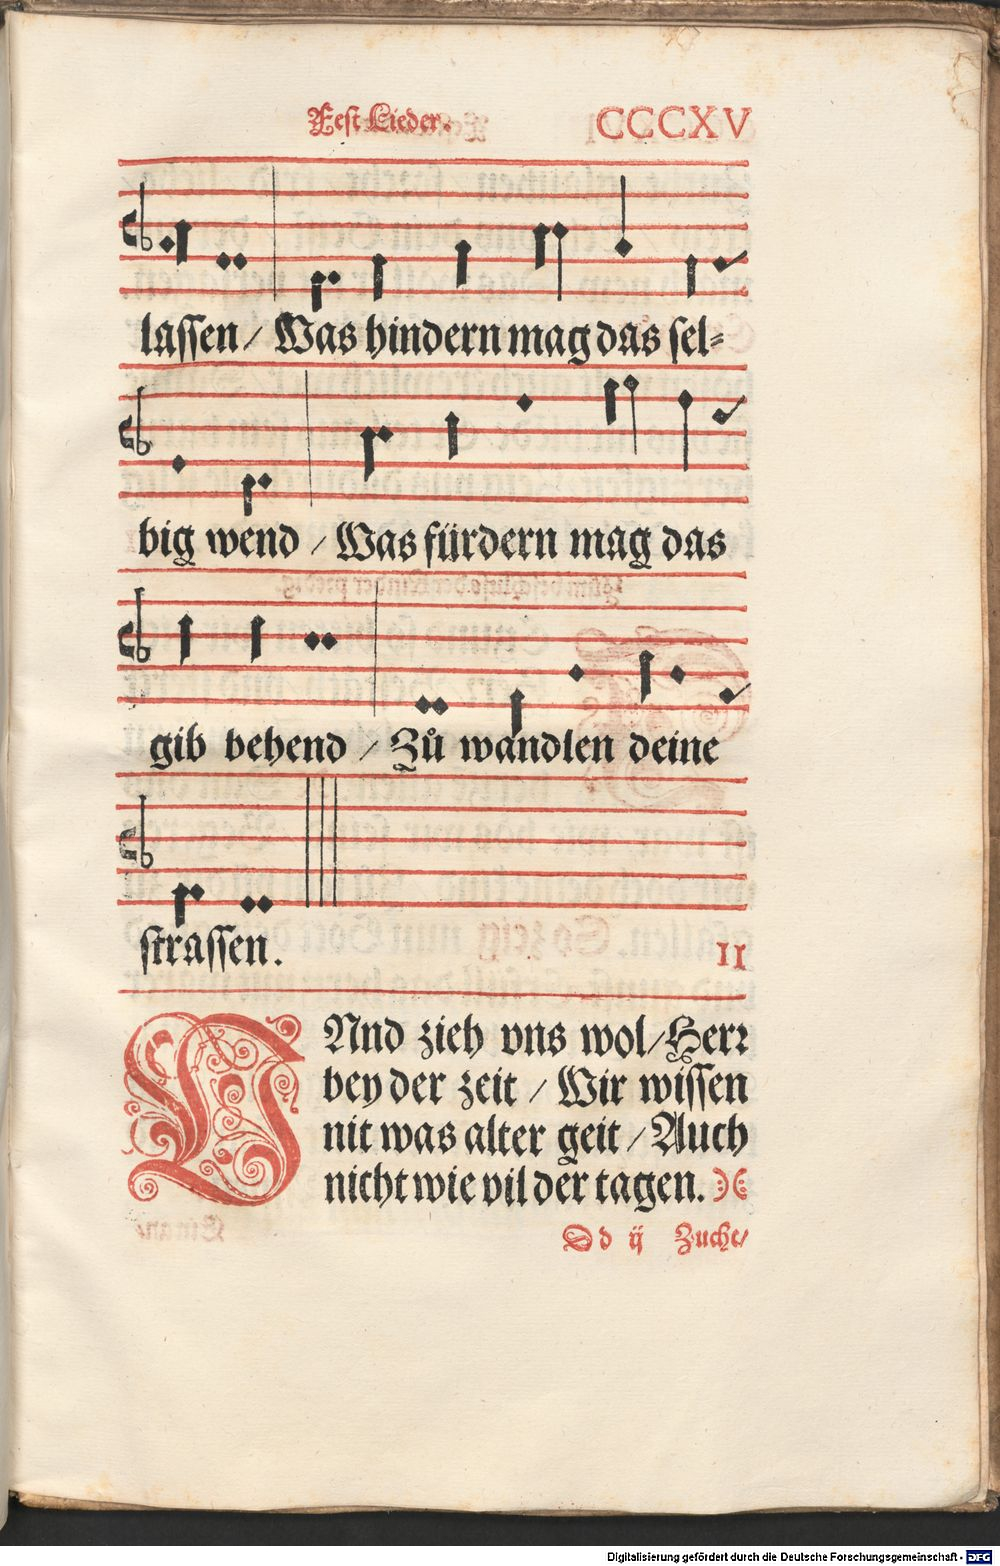 Fest Lieder. CCCXV
lassen / Was hindern mag das sel⸗
big wend / Was fürdern mag das
gib behend / Zů wandlen deine
strassen.
II
VNnd zieh vns wol / Herr
bey der zeit / Wir wissen
nit was alter geit / Auch
nicht wie vil der tagen.
Dd ij Zucht/
Digitalisierung gefördert durch die Deutsche Forschungsgemeinschaft - DFG